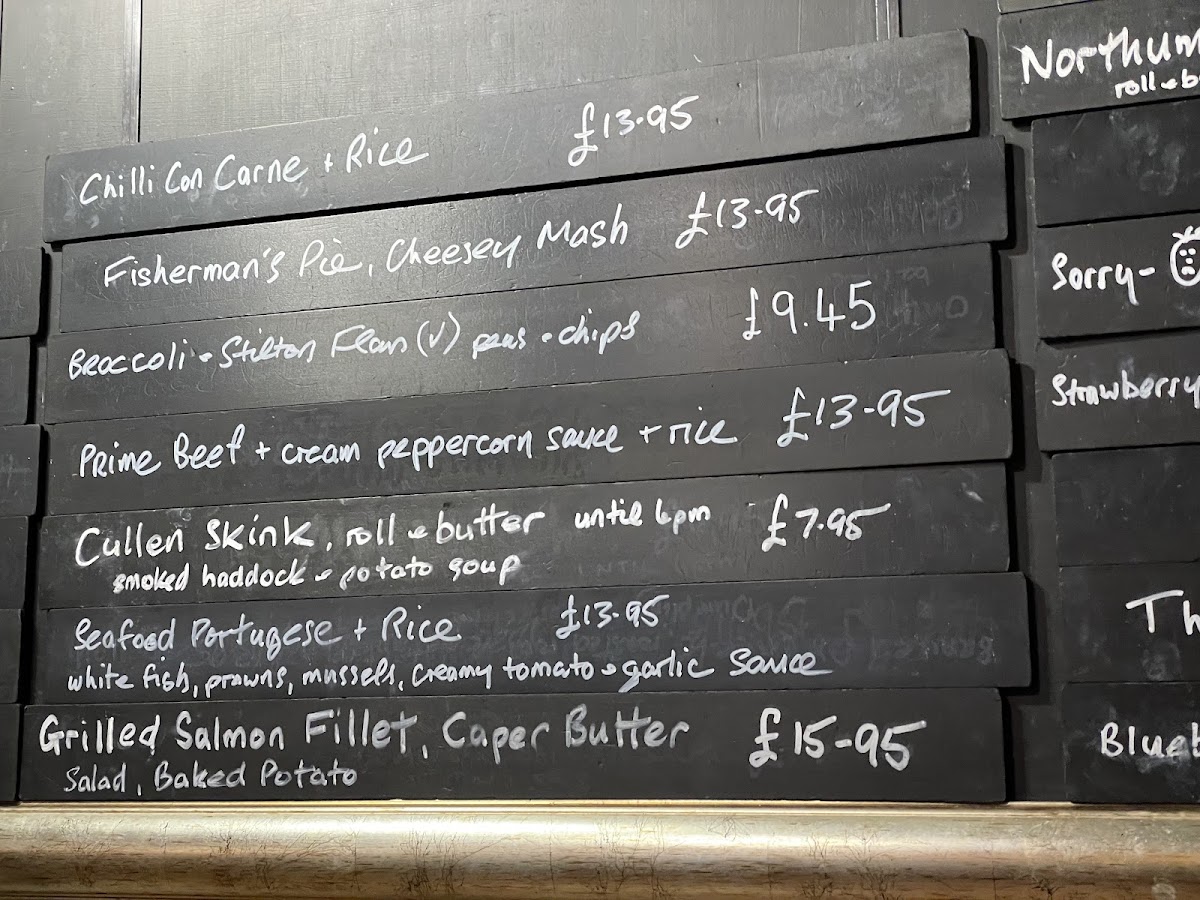 Chilli Con Carne + Rice £13.95
Fisherman's Pie, Cheesey Mash £13.95
Broccoli + Stilton Flan (V) peas + chips £9.45
Prime Beef + cream peppercorn sauce + rice £13-95
Cullen Skink, roll + butter until 6pm £7.95
smoked haddock + potato soup
Seafood Portugese + Rice £13.95
white fish, prawns, mussels, creamy tomato + garlic sauce
Grilled Salmon Fillet, Caper Butter £15-95
Salad, Baked Potato
Northum
roll + b
Sorry-
Strawberry
Th
Blueb